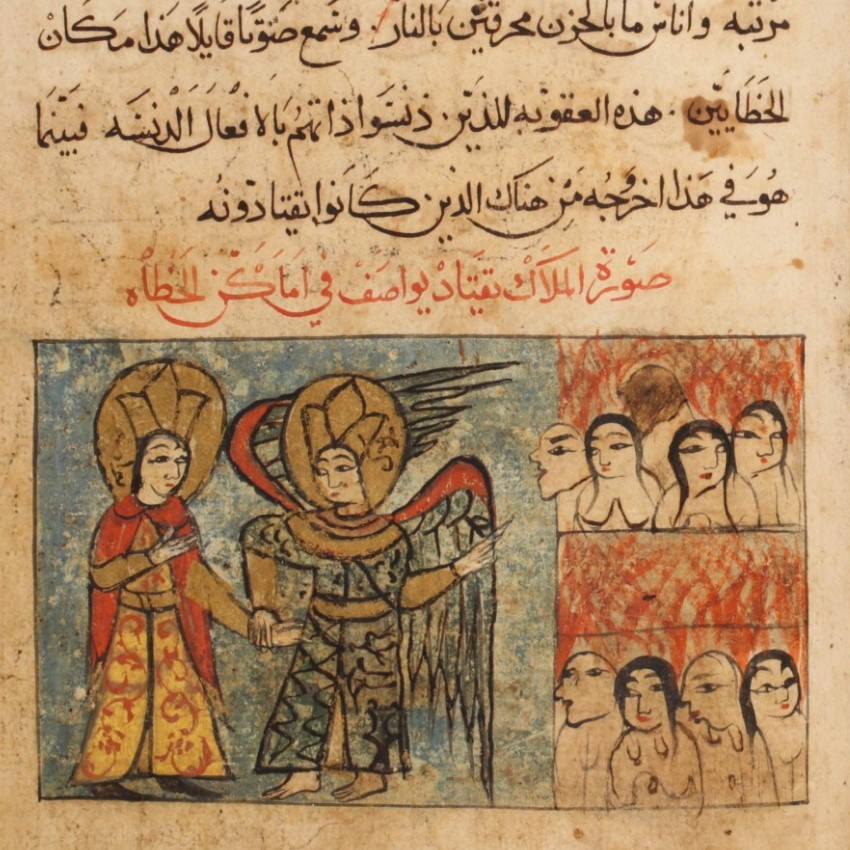 مرتبه واناس ما بالحزن محرقين بالنار. وسمع صوتا قايلا هذا مكان
الخطايين. هذه العقوبه للذين ذنسوا ذاتهم بالافعال الدنسه فبينما
هو في هذا اخرجه من هناك الذين كانوا يقتادونه
صورة الملاك يقتاد يواصف في اماكن الخطاه